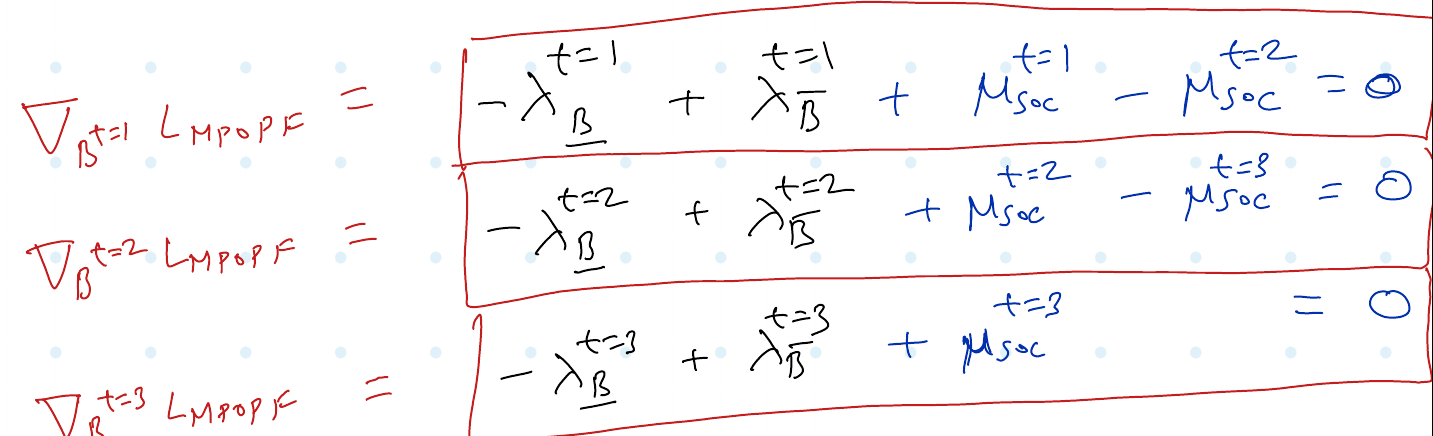 ∇_{B^{t=1}} L_{MPOPF} = -λ_{\underline{B}}^{t=1} + λ_{\overline{B}}^{t=1} + μ_{SOC}^{t=1} - μ_{SOC}^{t=2} = 0
∇_{B^{t=2}} L_{MPOPF} = -λ_{\underline{B}}^{t=2} + λ_{\overline{B}}^{t=2} + μ_{SOC}^{t=2} - μ_{SOC}^{t=3} = 0
∇_{B^{t=3}} L_{MPOPF} = -λ_{\underline{B}}^{t=3} + λ_{\overline{B}}^{t=3} + μ_{SOC}^{t=3} = 0